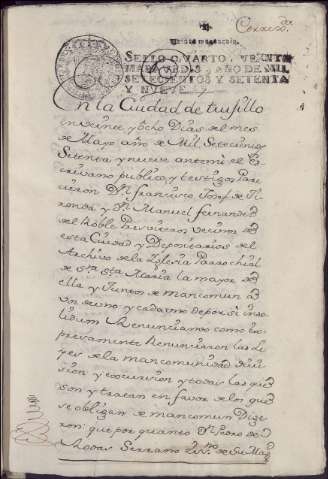 SELLO QVARTO, VEINTE
MARAVEDIS, AÑO DE MIL
SETECIENTOS Y SETENTA
Y NUEVE
En la Ciudad de trugillo
a veinte y ocho Dias del mes
de Mayo año de Mil Setecientos
Setenta y nueve antemi el Es
crivano publico y testigos Pare
cieron Dn francisco Josef de
y Dn Manuel fernandez
del Roble Presviteros vecinos de
esta Ciudad y Depositarios del
Archivo de la Iglesia Parrochial
de Sta Maria la mayor de
ella y Juntos de mancomun a
voz de uno y cada uno de por si inso
lidum Renunciamos como ex
presamente Renunciaron las Le
yes de la mancomunidad divi
sion y excursion y todas las que
son y tratan en favor de los que
se obligan de mancomun Dige
ron: que por quanto Dn Pedro de
Rodas Serrano Essno de Su Magd